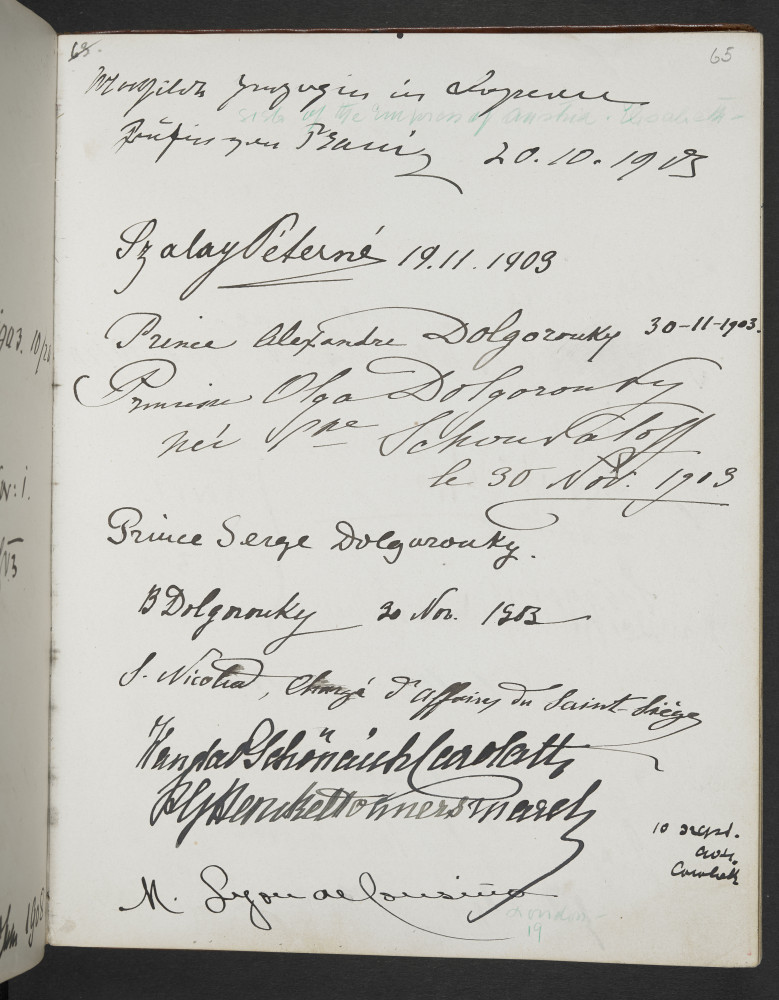 65.
65
Mathilde Herzogin in Bayern
sister of the Empress of Austria. Elisabeth -
Gräfin von Trani 20.10.1903
Szalay Péterné 19.11.1903
Prince Alexandre Dolgorouky 30-11-1903.
Princesse Olga Dolgorouky
née Pne Schouvaloff
le 30 Nov. 1903
Prince Serge Dolgorouky.
B Dolgorouky 30 Nov. 1903
S. Nicotra, Chargé d'affaires du Saint-Siège
Wanda Schönaich Carolath
Henckel Donnersmarck
10
Carolath
M. Lyon de
London -
19